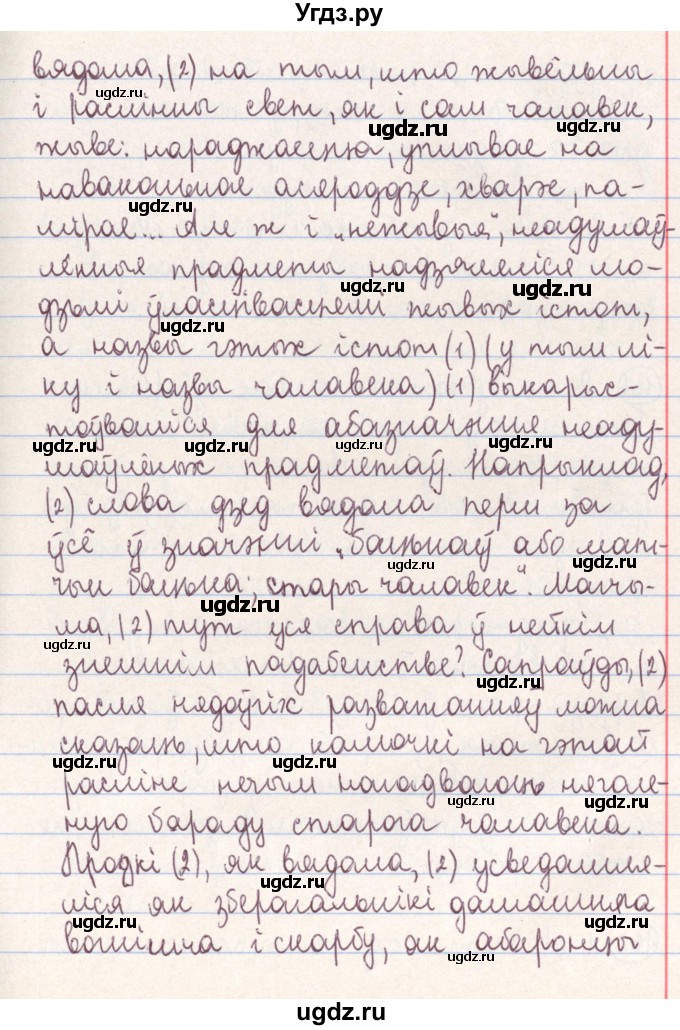 Угдз.ру
вядома, (2) на тым, што жывёльны
і раслінны свет, як і сам чалавек,
жыве: нараджаецца, уплывае на
навакольнае асяроддзе, хварэе, па-
мірае... Але ж і „нежывыя“, неадушаў-
лёныя прадметы надзяляліся лю-
дзьмі ўласцівасцямі жывых істот,
а назвы гэтых істот (1) (у тым лі-
ку і назвы чалавека) (1) выкарыс-
тоўваліся для абазначэння неаду-
шаўлёных прадметаў. Напрыклад,
(2) слова дзед вядома перш за
ўсё ў значэнні „бацькаў або мат-
чын бацька; стары чалавек“. Магчы-
ма, (2) тут уся справа ў нейкім
знешнім падабенстве? Сапраўды, (2)
пасля нядоўгіх разважанняў можна
сказаць, што калючкі на гэтай
расліне нечым нагадваюць няголе-
ную бараду старога чалавека.
Продкі (2), як вядома, (2) усведамля-
ліся як зберагальнікі дамашняга
вогнішча і скарбу, як абаронцы
ugdz.ru